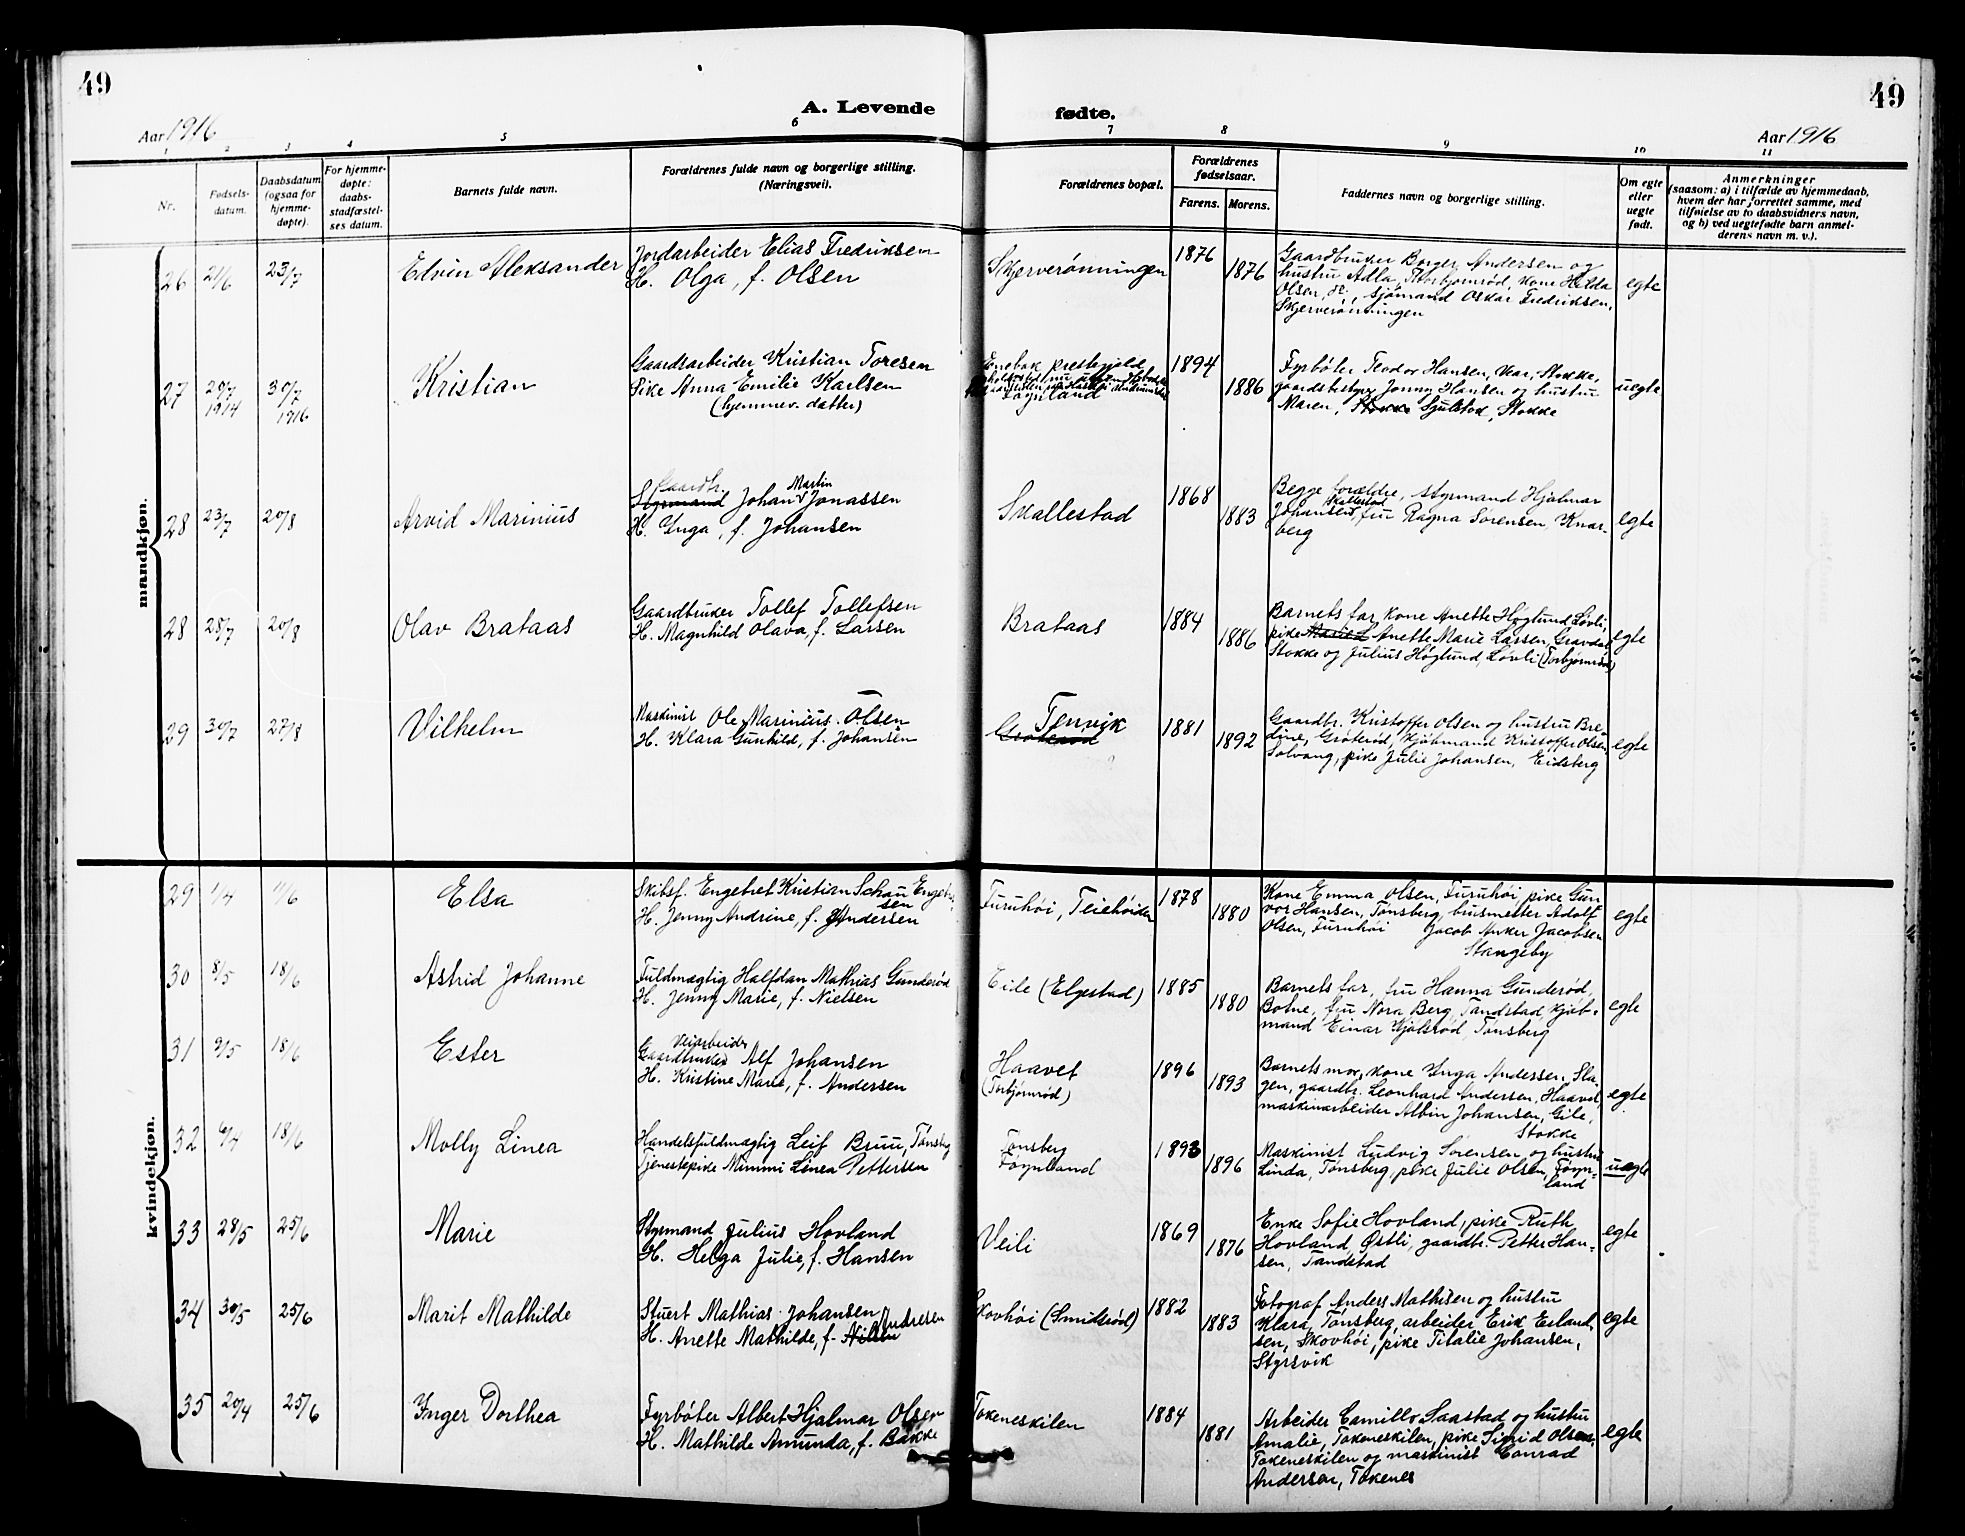 49
A. Levende
fødte.
49
Aar 1916
Aar 1916
1 2 3 4 5 6 7 8 9 10 11
Nr.
Fødsels-
datum.
Daabsdatum
(ogsaa for
hjemme-
døpte).
For hjemme-
døpte:
daabs-
stadfæstel-
ses datum.
Barnets fulde navn.
Forældrenes fulde navn og borgerlige stilling.
(Næringsvei).
Forældrenes bopæl.
Forældrenes
fødselsaar.
Farens. Morens.
Faddernes navn og borgerlige stilling.
Om egte
eller
uegte
født.
Anmerkninger
(saasom: a) i tilfælde av hjemmedaab,
hvem der har forrettet samme, med
tilføielse av to daabsvidners navn,
og b) ved uegtefødte barn anmel-
derens navn m. v.).
mandkjøn.
26 21/6 23/7 Edvin Aleksander
Jordarbeider Elias Fredriksen
H. Olga, f. Olsen
Skjerverønningen
1876
1876
Gaardbruker Borger Andersen og
hustru Alla, Thorbjørnrød, kone Hilda
Olsen, sjømand Oskar Fredriksen,
Skjerverønningen
egte
27 29/7 1914 30/7 1916 Kristian
Gaardsarbeider Kristian Toresen
Pike Anna Emilie Karlsen
(hjemmev. datter)
Enebak prestegjeld
Føynland
1894
1886
Fyrbøter Teodor Hansen, Vear, Stokke,
gaardsbestyr. Jonny Hansen og hustru
Maren, Stokke Gjulstad, Stokke
uegte
28 23/7 20/8 Arvid Marinius
Gaardbr.
Styrmand Johan Martin Jonassen
H. Inga, f. Johansen
Skallestad
1868
1883
Begge forældre, styrmand Hjalmar
Johansen, Skallestad, fru Ragna Sørensen, Knar-
berg
egte
28 28/7 20/8 Olav Brataas
Gaardbruker Tollef Tollefsen
H. Magnhild Olava, f. Larsen
Brataas
1884
1886
Barnets far, kone Anette Høglund, Løvli,
pike Anette Marie Larsen, Gravdal
Stokke og Julius Høglund, Løvli (Torbjørnrød)
egte
29 30/7 27/8 Vilhelm
Maskinist Ole Marinius Olsen
H. Klara Gunhild, f. Johansen
Tenvik
Grøterød
1881
1892
Gaardbr. Kristoffer Olsen og hustru Bre-
dine, Grøterød, kjøbmand Kristoffer Olsen,
Solvang, pike Julie Johansen, Eidsberg
egte
kvindekjøn.
29 1/4 11/6 Elsa
Skibsf. Engebret Kristian Schau Engebret-
sen
H. Jenny Andrine, f. Andersen
Furuhøi, Teiehøiden
1878
1880
Kone Emma Olsen, Furuhøi, pike Gun-
vor Hansen, Tønsberg, busmester Adolf
Olsen, Furuhøi Jacob Anker Jacobsen
Stangeby
egte
30 8/5 18/6 Astrid Johanne
Fuldmægtig Halfdan Mathias Gunderød
H. Jenny Marie, f. Nielsen
Eide (Elgestad)
1885
1880
Barnets far, fru Hanna Gunderød,
Botne, fru Nora Berg, Tandstad, kjøb-
mand Einar Kjølsrød, Tønsberg
egte
31 9/5 18/6 Ester
Veiarbeider
Gaardbruker Alf Johansen
H. Kristine Marie, f. Andersen
Haavet
(Torbjørnrød)
1896
1893
Barnets mor, kone Inga Andersen, Sla-
gen, gaardbr. Leonhard Andersen, Haavet,
maskinarbeider Albin Johansen, Gile,
Stokke
egte
32 9/4 18/6 Molly Linea
Handelsfuldmægtig Leif Bruu, Tønsberg
Tjenestepike Mimmi Linea Pettersen
Tønsberg
Føynland
1893
1896
Maskinist Ludvig Sørensen og hustru
Linda, Tønsberg, pike Julie Olsen, Føyn-
land
uegte
33 28/5 25/6 Marie
Styrmand Julius Hovland
H. Helga Julie, f. Hansen
Veili
1869
1876
Enke Sofie Hovland, pike Ruth
Hovland, Østli, gaardbr. Petter Han-
sen, Tandstad
egte
34 30/5 25/6 Marit Mathilde
Stuert Mathias Johansen
H. Anette Mathilde, f. Nilsen Andresen
Skovhøi (Smidsrød)
1882
1883
Fotograf Anders Mathisen og hustru
Klara, Tønsberg, arbeider Erik Erland-
sen, Skovhøi, pike Titalie Johansen,
Styrsvik
egte
35 20/4 25/6 Inger Dorthea
Fyrbøter Albert Hjalmar Olsen
H. Mathilde Amunda, f. Bakke
Tokeneskilen
1884
1881
Arbeider Camillo Saastad og hustru
Amalie, Tokeneskilen, pike Sigrid Olsen,
Tokeneskilen og maskinist Conrad
Andersen, Tokenes
egte